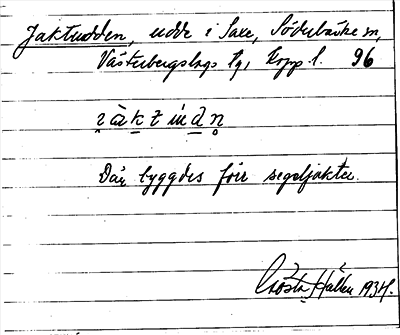 Jaktudden, udde i Saxe, Söderbärke sn,
Västerbergslags tg, Kopp. l. 96
Där byggdes förr segeljakter.
Gösta Hallen 1934.